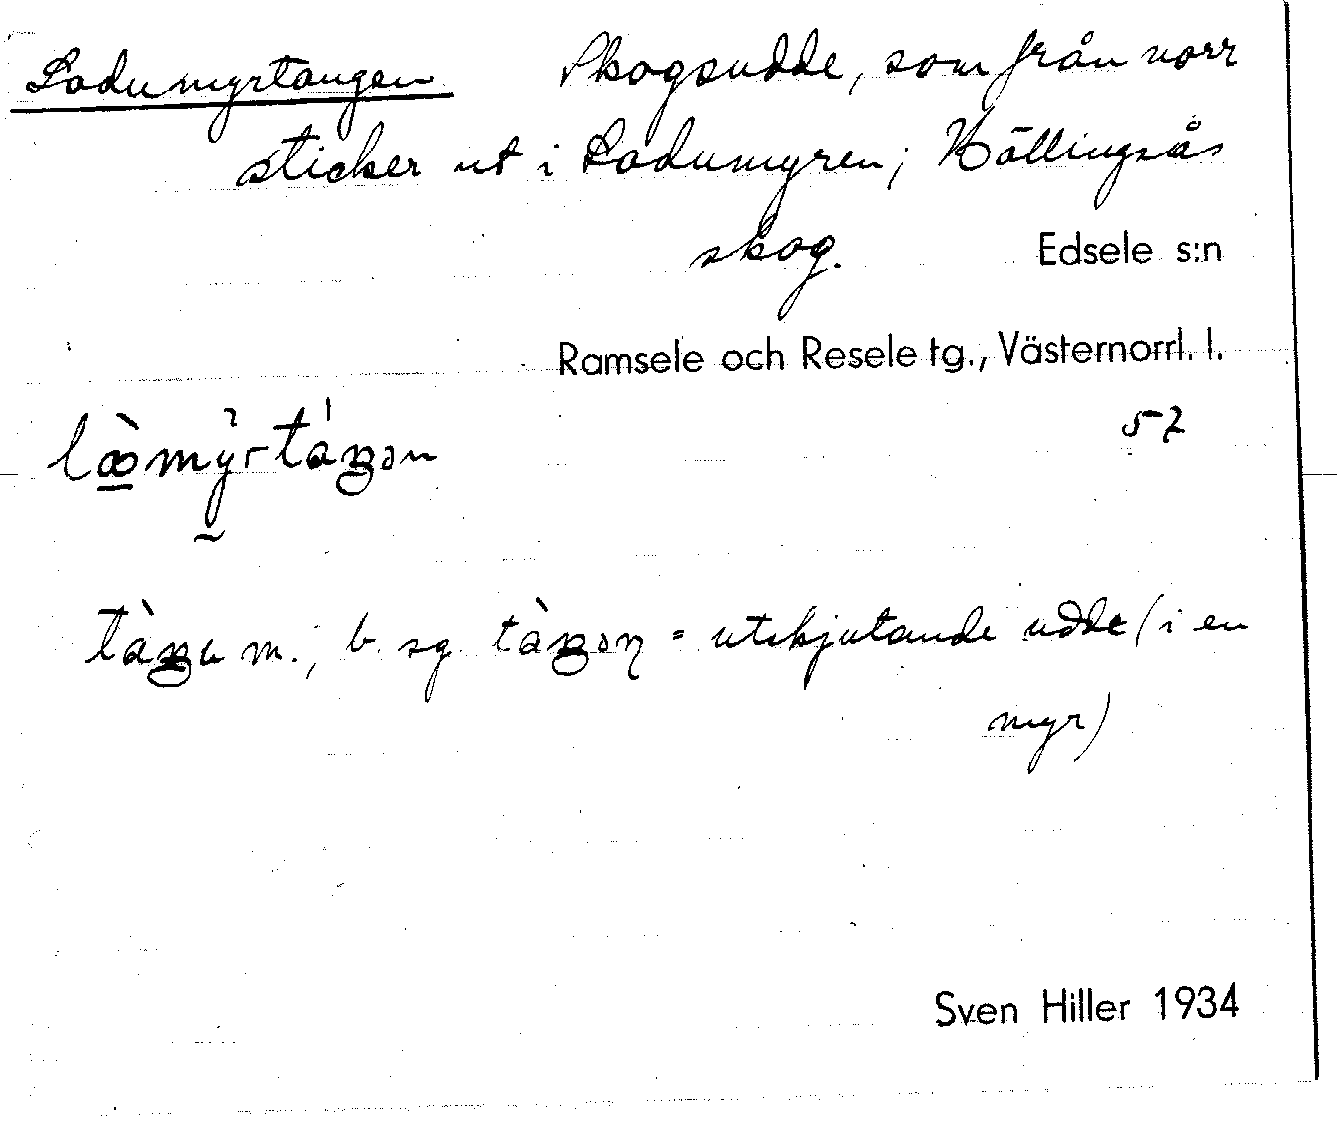 Ladumyrtangen Skogsudde, som från norr
sticker ut i Ladumyren; Hällingsås
skog. Edsele s:n
Ramsele och Resele tg., Västernorrl. l.
57
m.; b. sg. = utskjutande udde (i en
myr)
Sven Hiller 1934